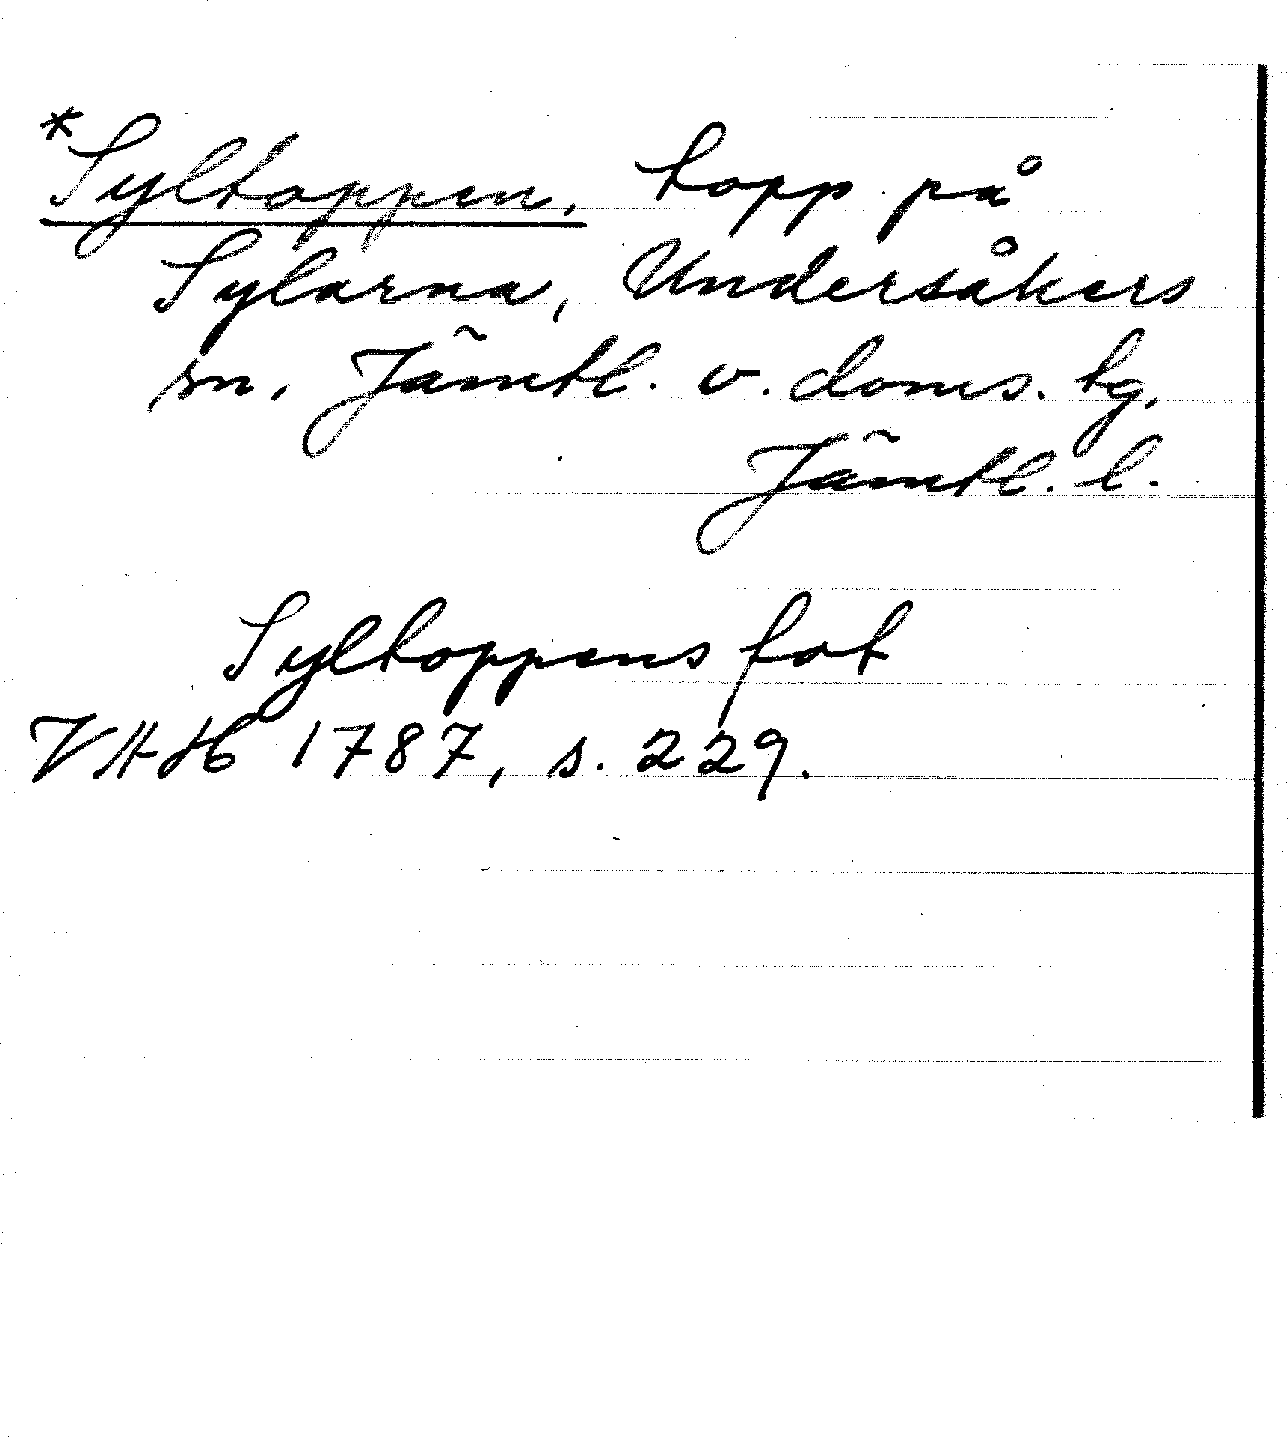 *Syltoppen, topp på
Sylarna, Undersåkers
sn, Jämtl. v. doms. tg,
Jämtl. l.
Syltoppens fot
VAH 1787, s. 229.